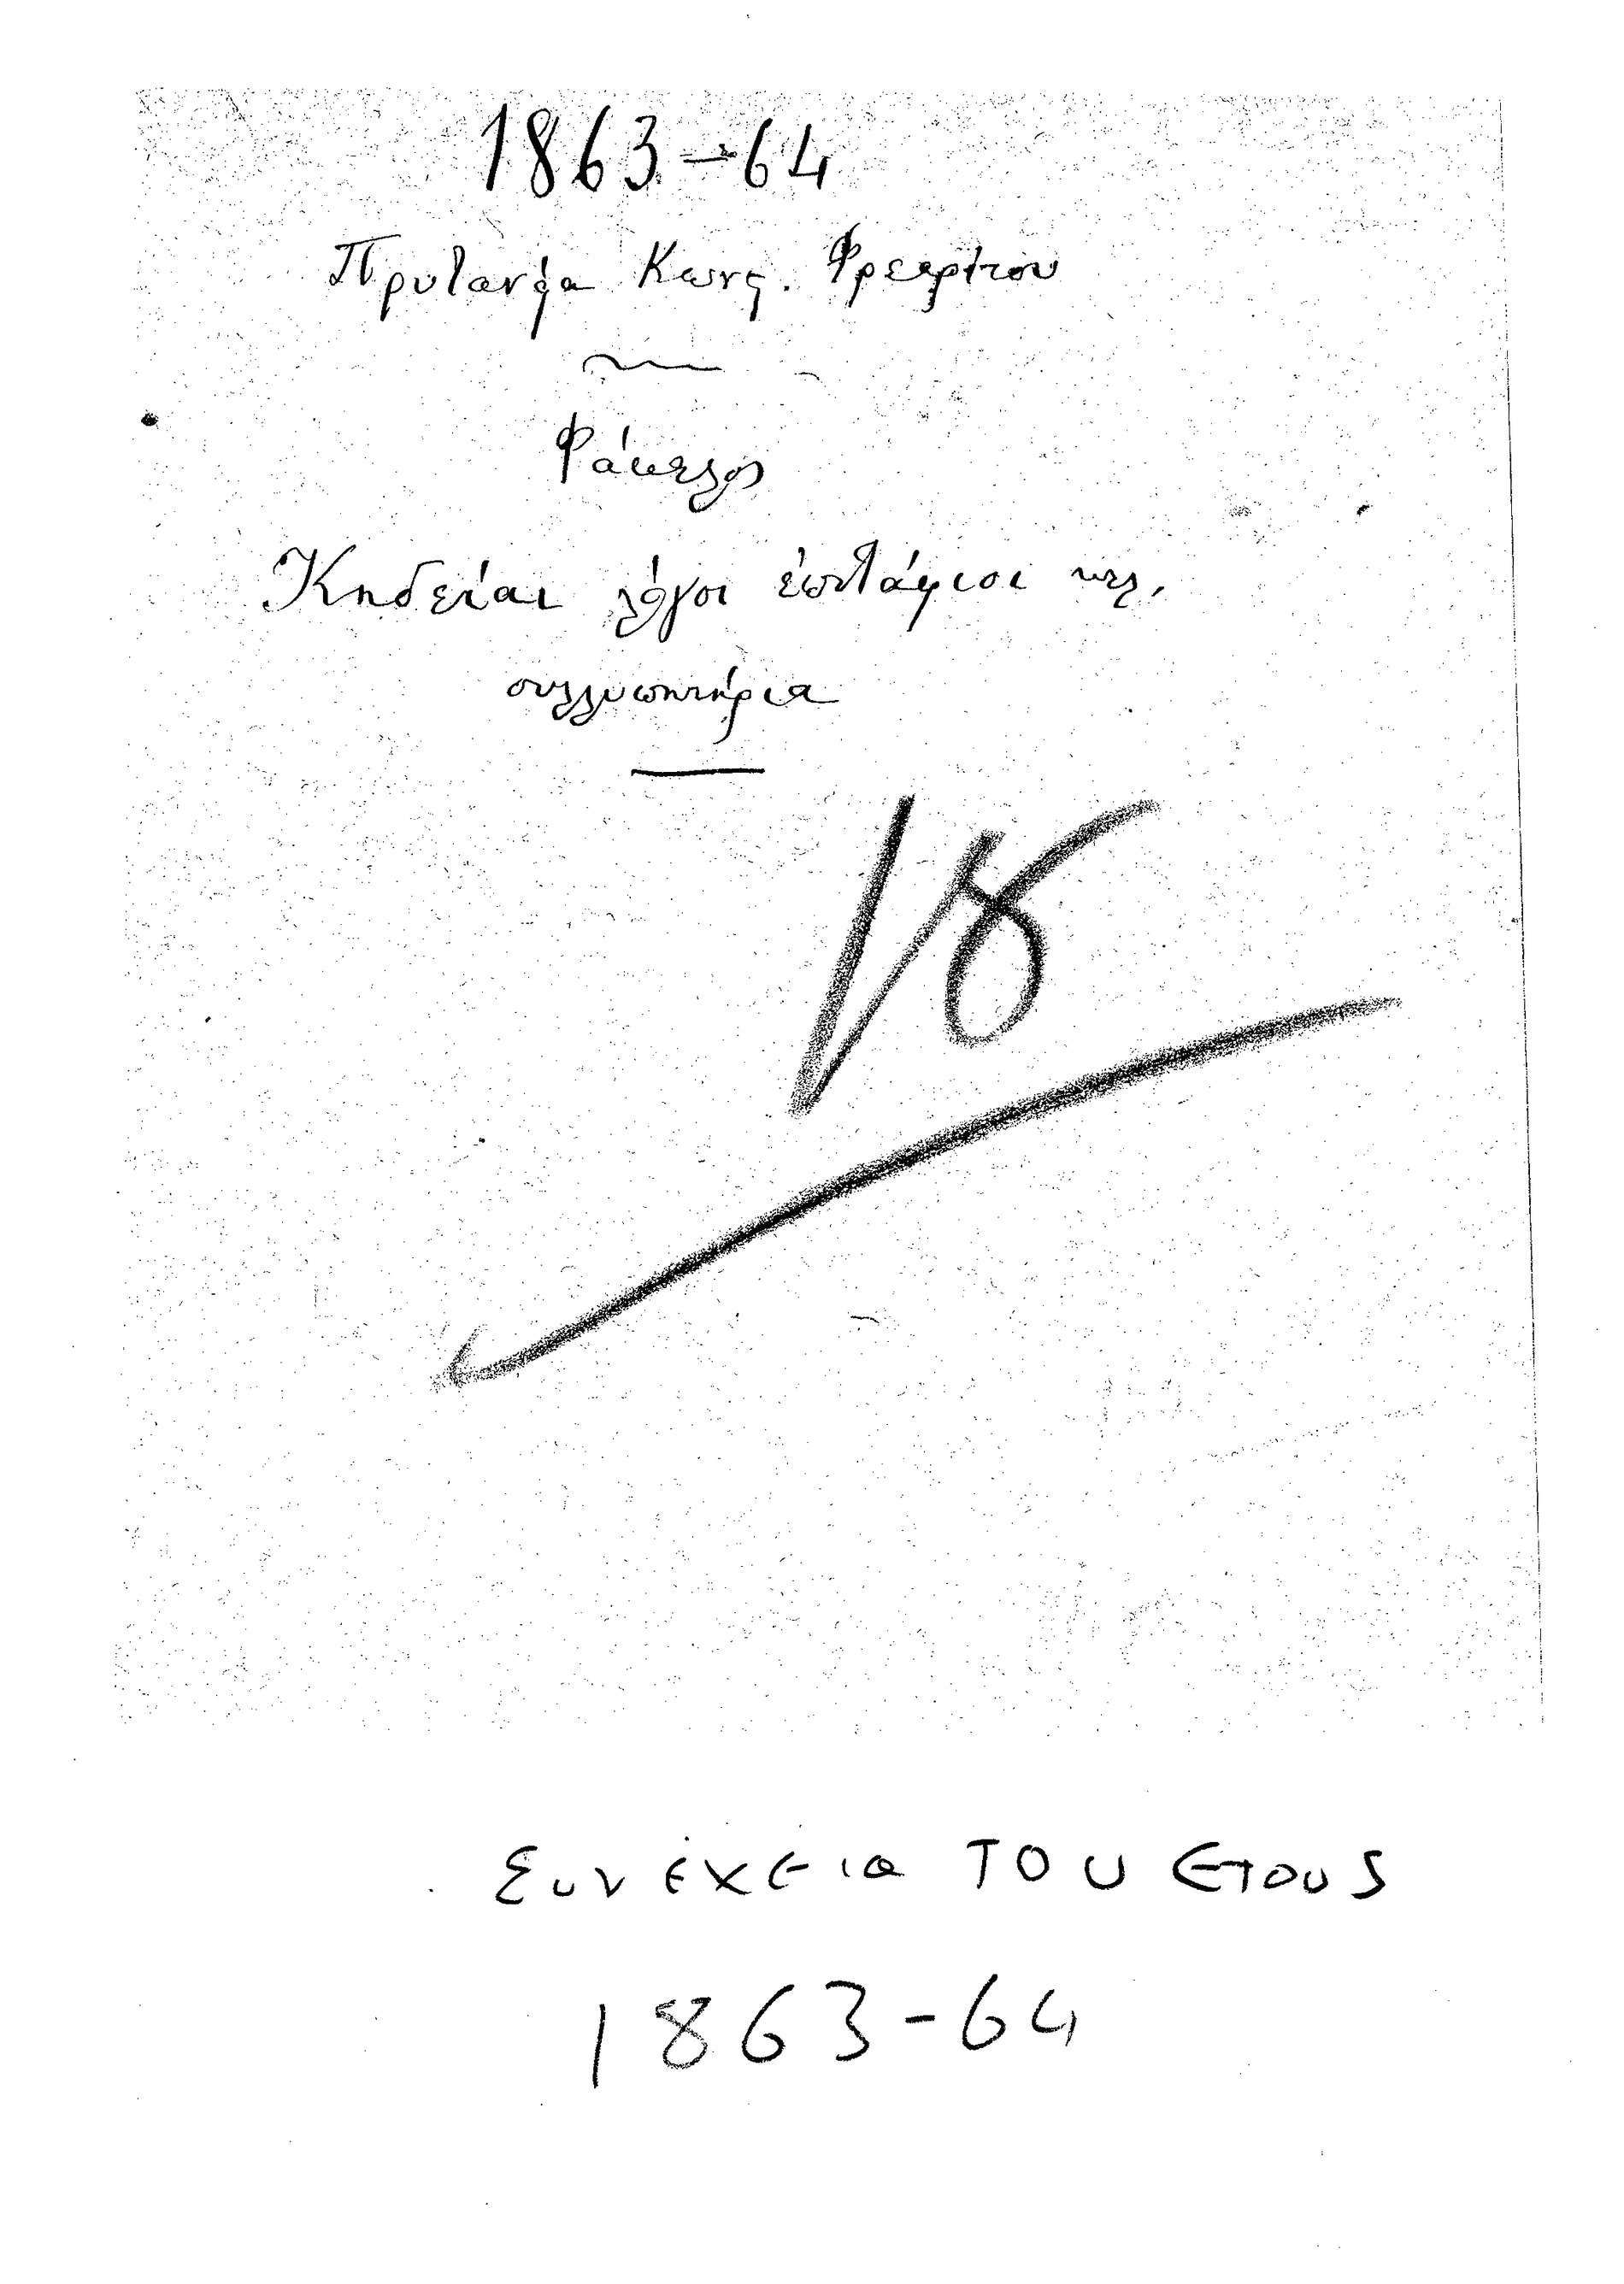 1863-64
Πρυτανεία Κωνς. Φρεαρίτου
Φάκελος
Κηδείαι λόγοι ἐπιτάφιοι κτλ.
συλλυπητήρια
18
Συνέχεια ΤΟυ Ετους
1863-64